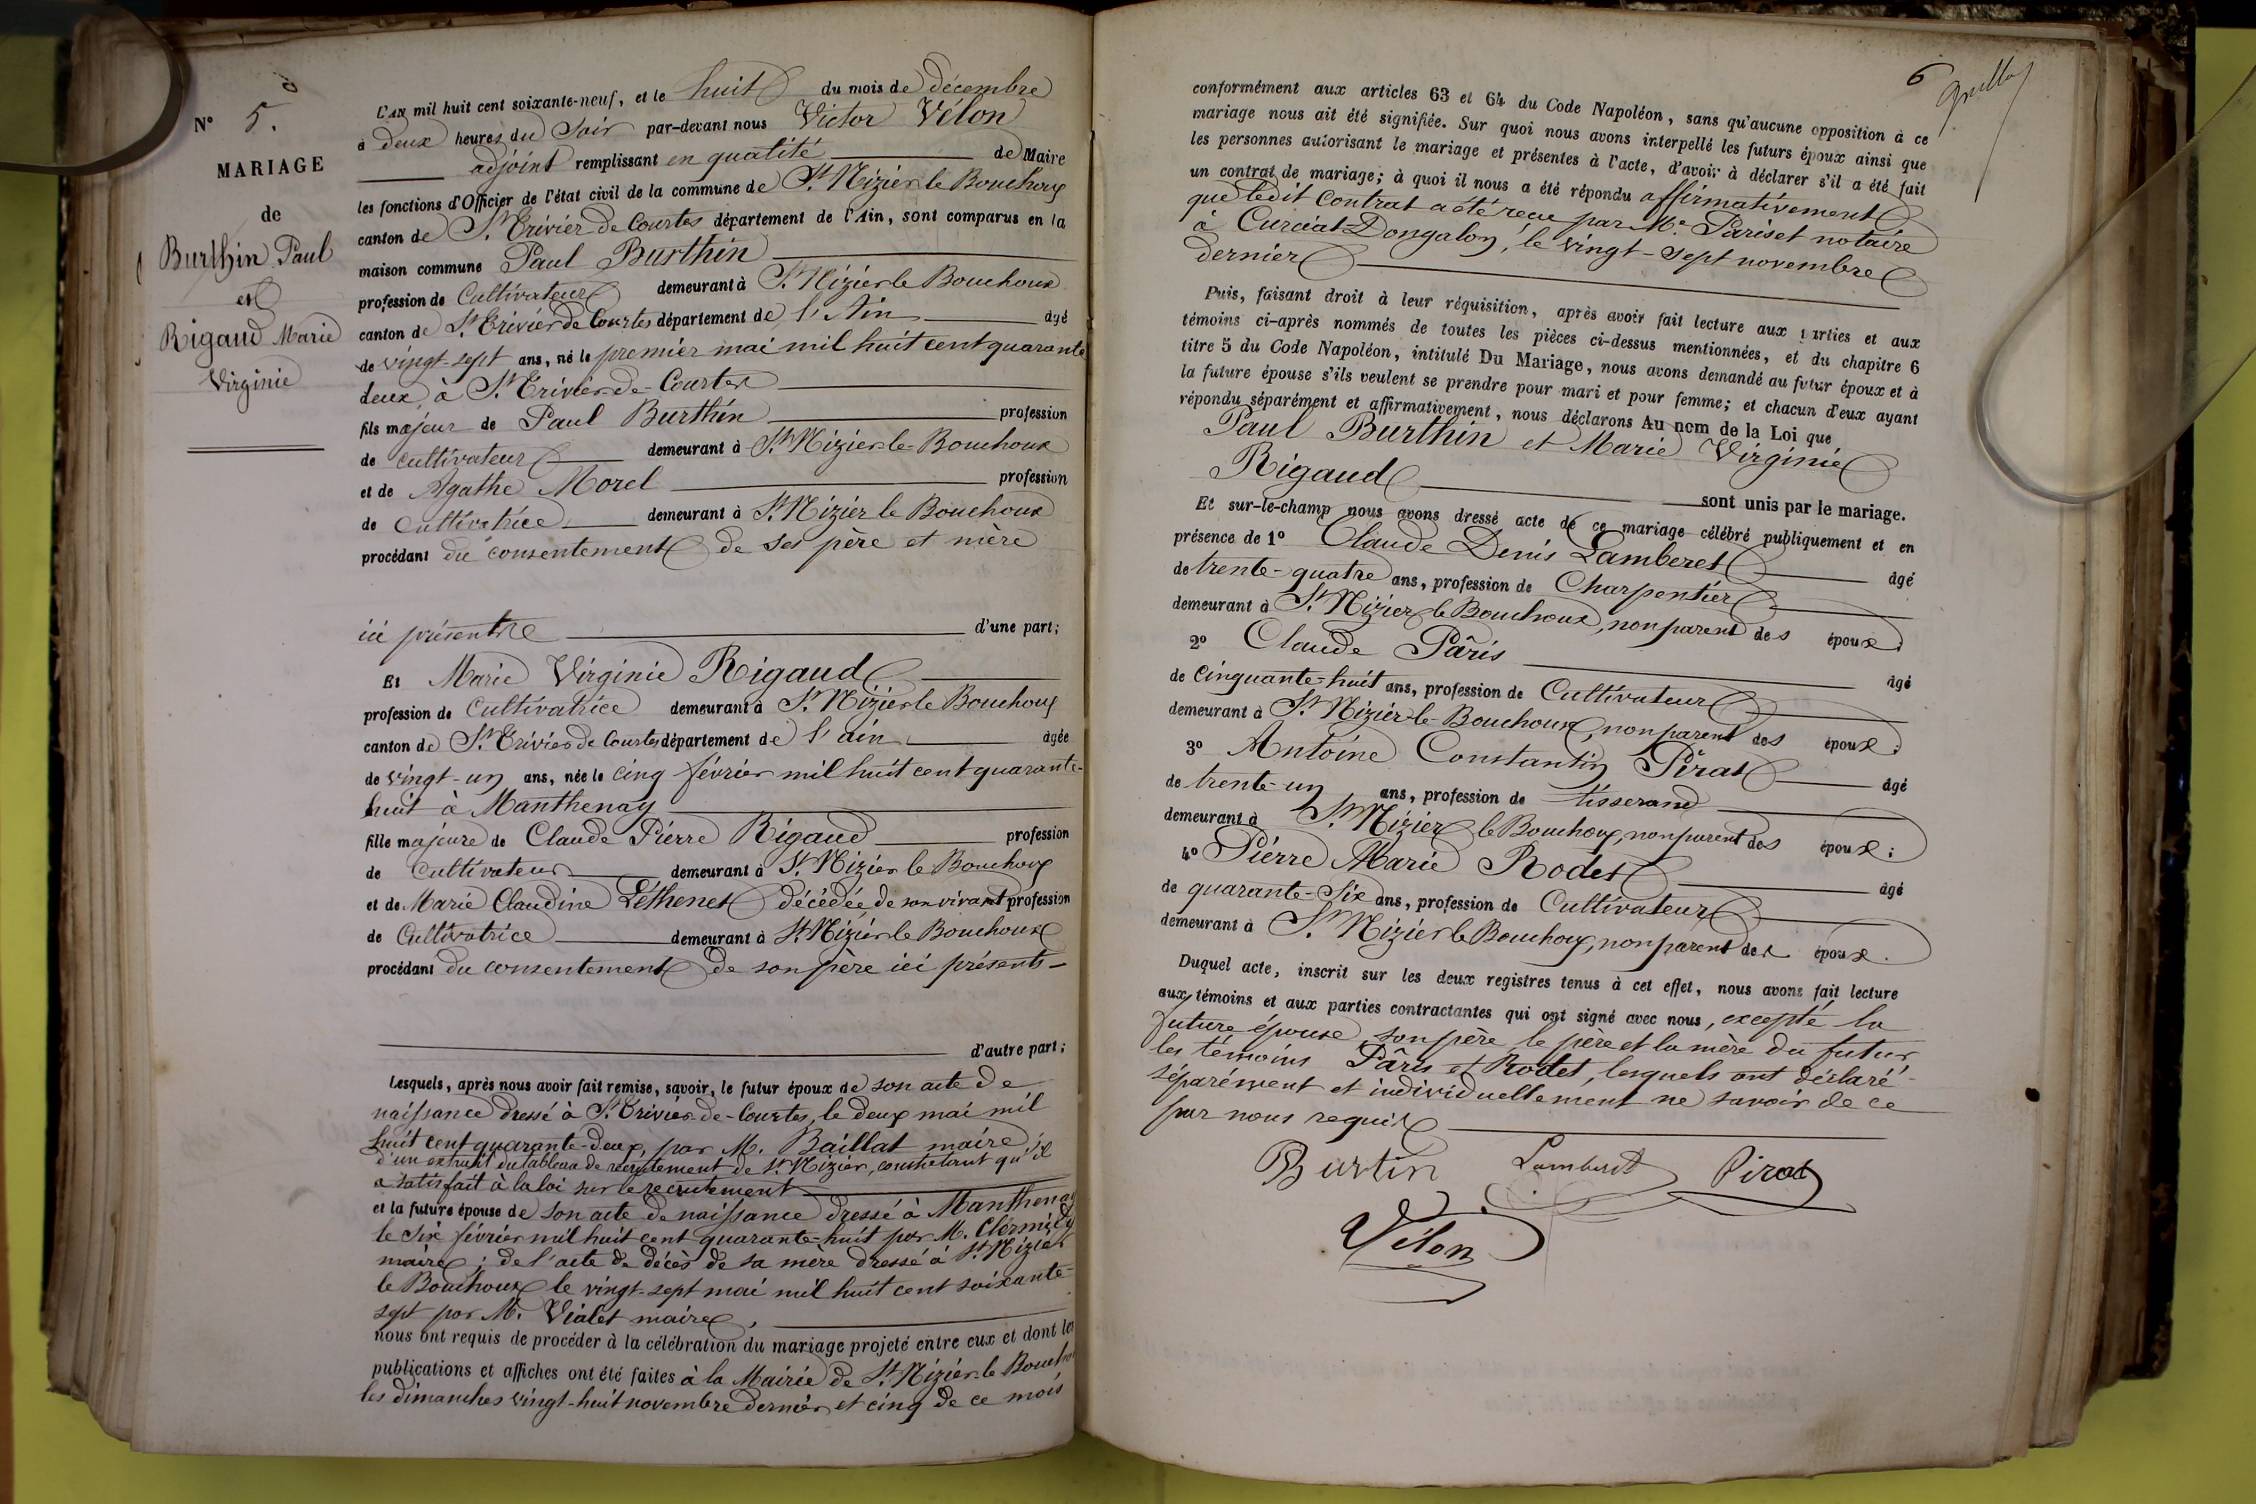 N° 5.
MARIAGE
de
Burthin Paul
et
Rigaud Marie
Virginie
L'AN mil huit cent soixante-neuf, et le huit du mois de décembre
à deux heures du soir par-devant nous Victor Vélon
adjoint remplissant en qualité de Maire
les fonctions d'Officier de l'état civil de la commune de St Nizier le Bouchoux
canton de St Trivier de Courtes département de l'Ain, sont comparus en la
maison commune Paul Burthin
profession de Cultivateur demeurant à St Nizier le Bouchoux
canton de St Trivier de Courtes département de l'Ain âgé
de vingt-sept ans, né le premier mai mil huit cent quarante
deux à St Trivier-de-Courtes
fils majeur de Paul Burthin profession
de cultivateur demeurant à St Nizier-le-Bouchoux
et de Agathe Morel profession
de Cultivatrice demeurant à St Nizier le Bouchoux
procédant du consentement de ses père et mère
ici présents d'une part;
Et Marie Virginie Rigaud
profession de Cultivatrice demeurant à St Nizier le Bouchoux
canton de St Trivier de Courtes département de l'ain âgée
de vingt-un ans, née le cinq février mil huit cent quarante-
huit à Manthenay
fille majeure de Claude Pierre Rigaud profession
de Cultivateur demeurant à St Nizier le Bouchoux
et de Marie Claudine Péthenet décédée de son vivant profession
de Cultivatrice demeurant à St Nizier le Bouchoux
procédant du consentement de son père ici présents
d'autre part;
Lesquels, après nous avoir fait remise, savoir, le futur époux de son acte de
naissance dressé à St Trivier-de-Courtes, le deux mai mil
huit cent quarante-deux, par M. Baillat maire;
d'un extrait du tableau de recrutement de St Nizier, constatant qu'il
a satisfait à la loi sur le recrutement
et la future épouse de son acte de naissance dressé à Manthenay
le six février mil huit cent quarante-huit par M.
maire; de l'acte de décès de sa mère dressé à St Nizier
le Bouchoux le vingt-sept mai mil huit cent soixante-
sept par M. Vialet maire,
nous ont requis de procéder à la célébration du mariage projeté entre eux et dont les
publications et affiches ont été faites à la Mairie de St Nizier-le Bouchou
les dimanches vingt-huit novembre dernier et cinq de ce mois
6
conformément aux articles 63 et 64 du Code Napoléon, sans qu'aucune opposition à ce
mariage nous ait été signifiée. Sur quoi nous avons interpellé les futurs époux ainsi que
les personnes autorisant le mariage et présentes à l'acte, d'avoir à déclarer s'il a été fait
un contrat de mariage; à quoi il nous a été répondu affirmativement
que ledit contrat a été reçu par Me Pariset notaire
à Curciat-Dongalon, le vingt-sept novembre
dernier
Puis, faisant droit à leur réquisition, après avoir fait lecture aux parties et aux
témoins ci-après nommés de toutes les pièces ci-dessus mentionnées, et du chapitre 6
titre 5 du Code Napoléon, intitulé Du Mariage, nous avons demandé au futur époux et à
la future épouse s'ils veulent se prendre pour mari et pour femme; et chacun d'eux ayant
répondu séparément et affirmativement, nous déclarons Au nom de la Loi que
Paul Burthin et Marie Virginie
Rigaud sont unis par le mariage.
Et sur-le-champ nous avons dressé acte de ce mariage célébré publiquement et en
présence de 1° Claude Denis Lamberet âgé
de trente-quatre ans, profession de Charpentier
demeurant à St Nizier le Bouchoux, non parent des époux;
2° Claude Pâris âgé
de Cinquante-huit ans, profession de Cultivateur
demeurant à St Nizier-le-Bouchoux, non parent des époux;
3° Antoine Constantin Pirat âgé
de trente-un ans, profession de tisserand
demeurant à St Nizier le Bouchoux, non parent des époux;
4° Pierre Marie Rodet âgé
de quarante-six ans, profession de Cultivateur
demeurant à St Nizier le Bouchoux, non parent des époux.
Duquel acte, inscrit sur les deux registres tenus à cet effet, nous avons fait lecture
aux témoins et aux parties contractantes qui ont signé avec nous, excepté la
future épouse, son père le père et la mère du futur,
les témoins Pâris et Rodet, lesquels ont déclaré
séparément et individuellement ne savoir de ce
par nous requis
Burtin Lamberet Pirat
Vélon